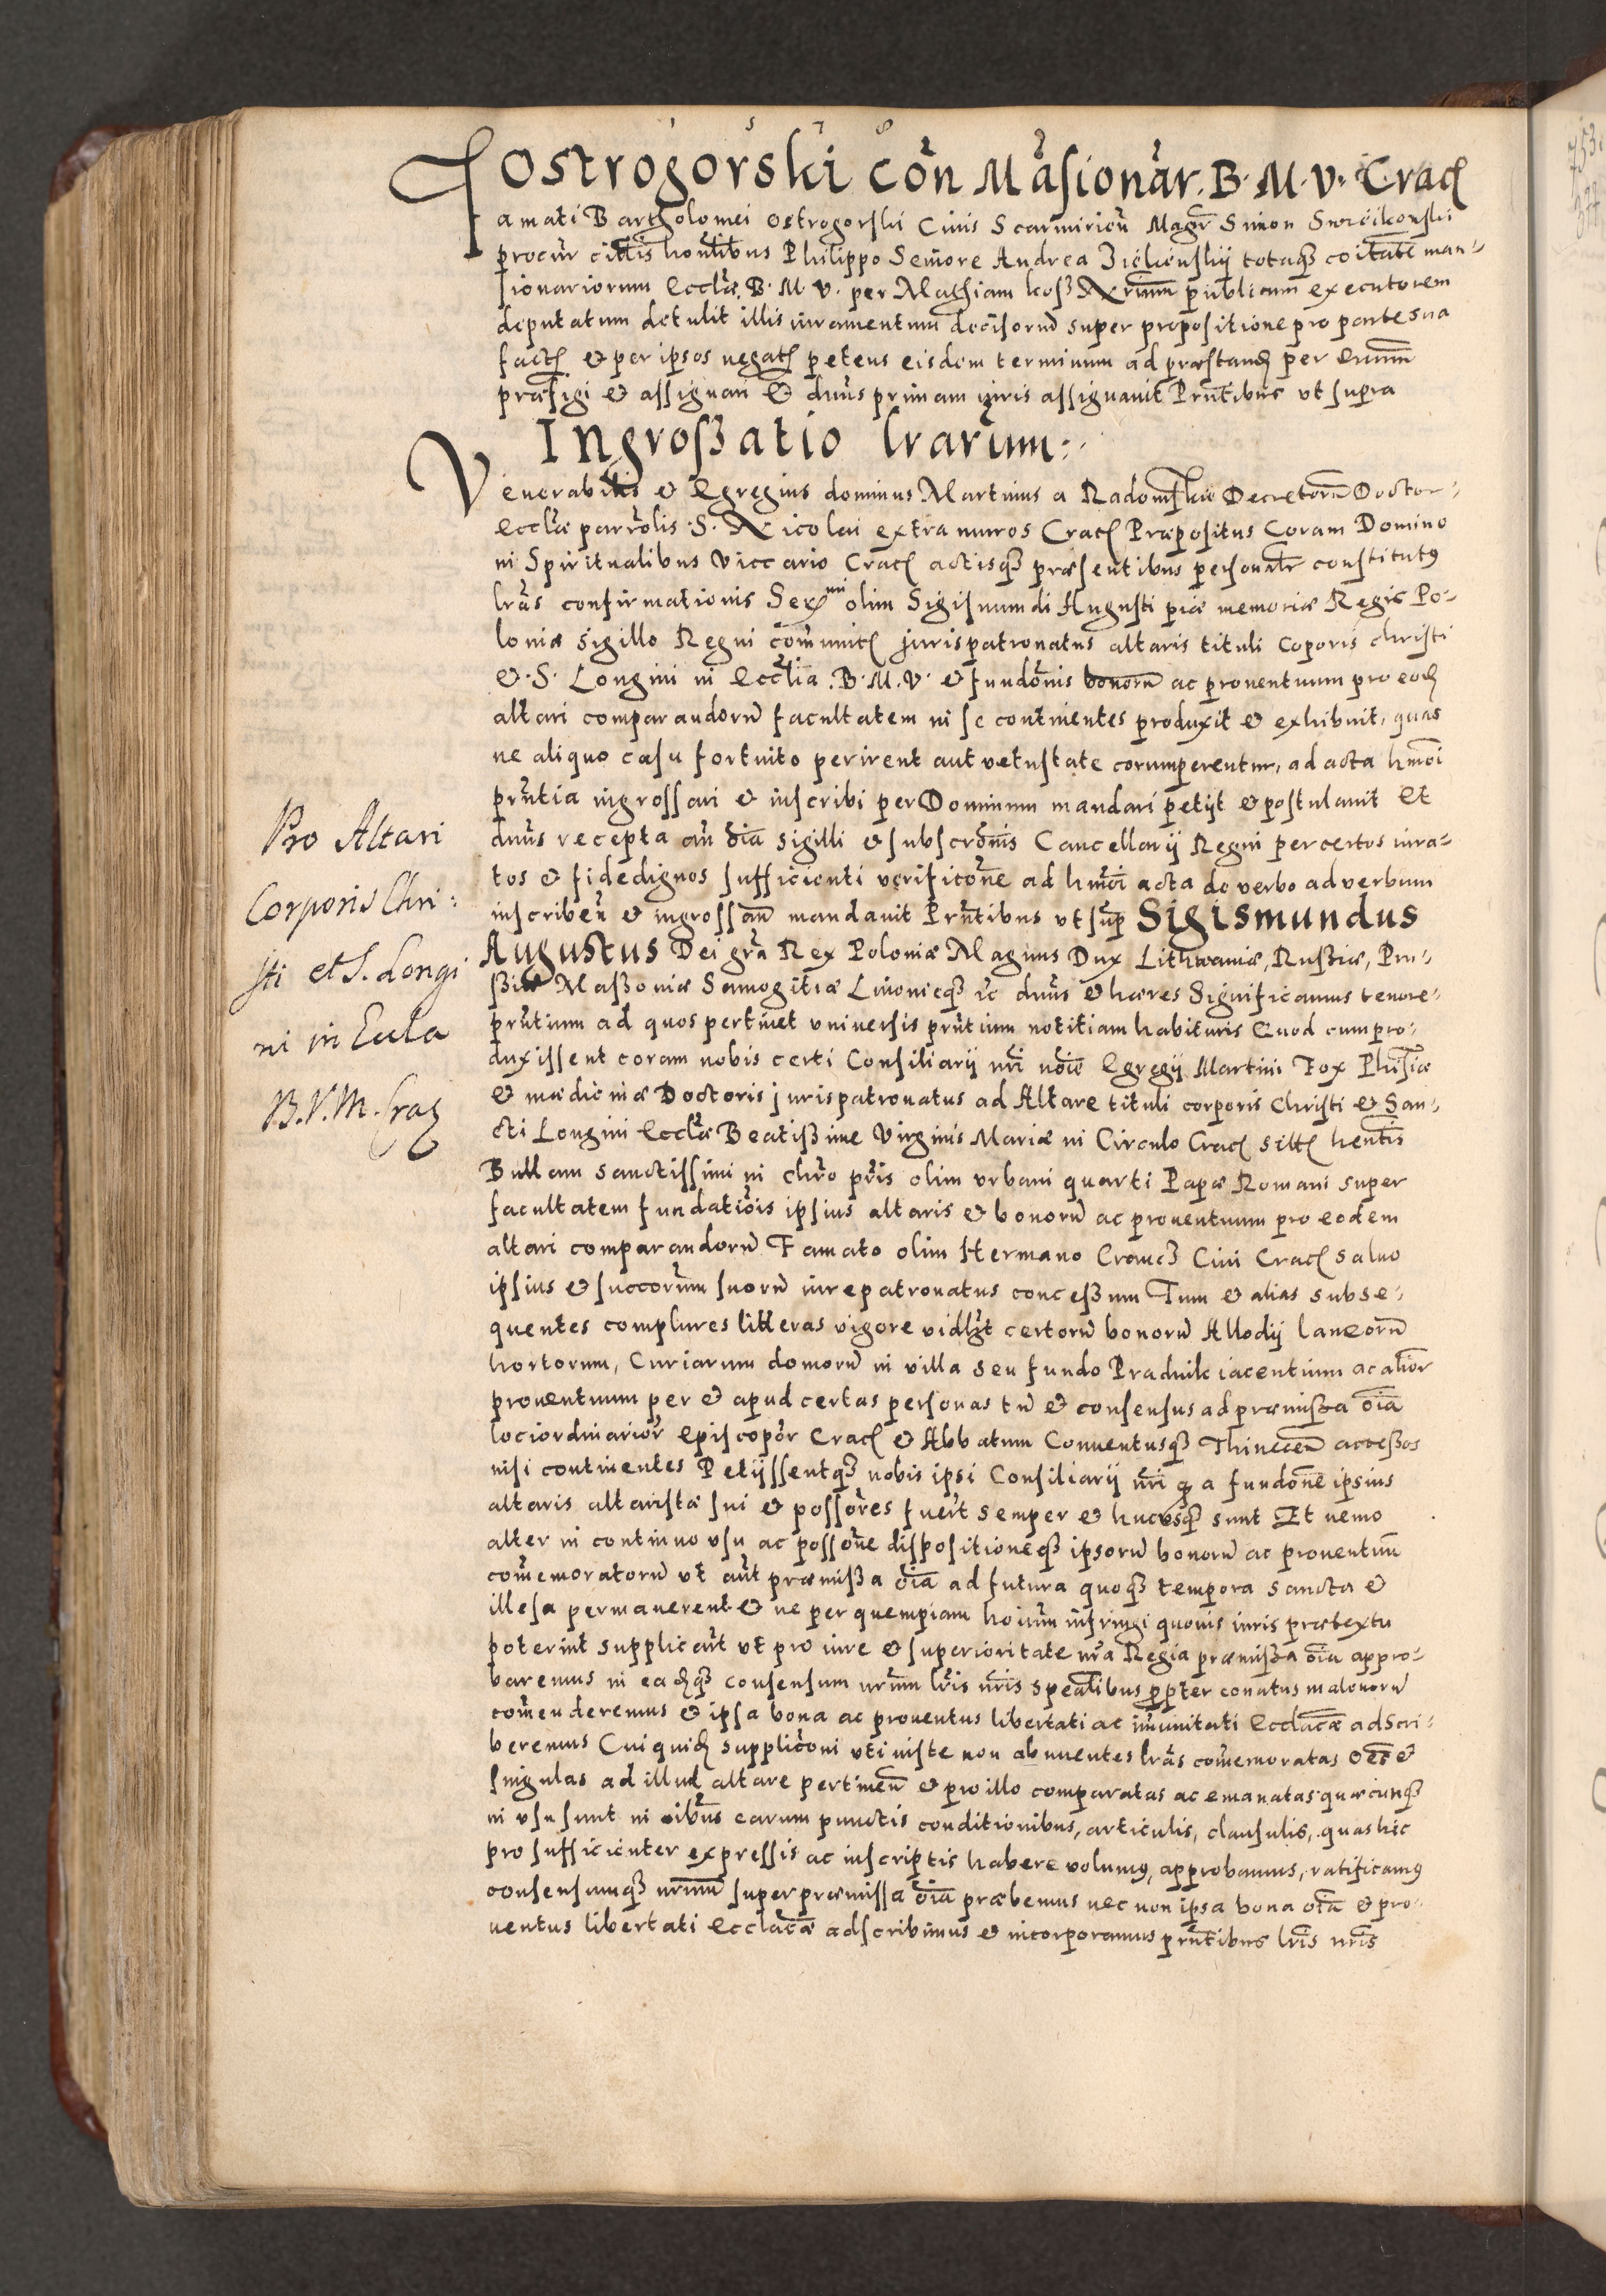 1 5 7 8
Ostrogorski Con Masionar. B. M. V. Crac
Famati Bartholomei Ostrogorski Ciuis Scarmirien Magr Simon
procur cittis honlibus Philippo Seniore Andrea totaqz coitate man-
sionariorum Ecclae B. M. V. per Mathiam kosz Nrium publicum executorem
deputatum detulit illis iuramentum decisorum super propositione pro parte sua
fact et per ipsos negat petens eisdem terminum ad præstand per
præfigi et assignari Et dnus primam iuris assignauit Prntibus vt supra
Ingroßatio lrarum:
Venerabilis et Egregius dominus Martinus a Radomsko Decretorum Doctor
Ecclæ parrolis S. Nicolai extra muros Crac Præpositus Coram Domino
in Spiritualibus Viccario Crac actisqz præsentibus personalr constitutus
lras confirmationis Sermi olim Sigismundi Augusti piæ memoriæ Regis Po-
loniæ sigillo Regni comunit jurispatronatus altaris tituli Coporis christi
et S. Longini in Ecclia B. M. V. et fundonis bonorum ac prouentuum pro eod
altari comparandorum facultatem in se continentes produxit et exhibuit, quas
ne aliquo casu fortuito perirent aut vetustate corumperentur, ad acta hmoi
prntia ingrossari et inscribi per Dominum mandari petijt et postulauit Et
dnus recepta an oia sigilli et subscronis Cancellarij Regni per certos iura-
tos et fidedignos sufficienti verificone ad hmoi acta de verbo ad verbum
inscriben et ingrossan mandauit Prntibus vt sup Sigismundus
Augustus Dei gra Rex Poloniæ Magnus Dux Lithwaniæ, Rußiæ, Pru-
ßiæ Maßoniæ Samogitiæ Liuoniæqz ic dnus et hæres Significamus tenore
prntium ad quos pertinet vniuersis prntium notitiam habituris Quod cum pro-
duxissent coram nobis certi Consiliarij nri noie Egregij Martini Fox Phisicæ
et mædicinæ Doctoris jurispatronatus ad Altare tituli corporis Christi et San-
cti Longini Ecclæ Beatißime Virginis Mariæ in Circulo Crac sitt hentis
Bullam sanctissimi in chro pris olim vrbani quarti Papæ Romani super
facultatem fundatiois ipsius altaris et bonorum ac prouentuum pro eodem
altari comparandorum Famato olim Hermano Crancz Ciui Crac saluo
ipsius et succorum suorum iurepatronatus conceßum Tum et alias subse-
quentes complures litteras vigore vidlzt certorum bonorum Allodij laneorum
hortorum, Curiarum domorum in villa seu fundo Pradnik iacentium ac alior
prouentuum per et apud certas personas tum et consensus ad præmißa oia
lociordinarior Episcopor Crac et Abbatum Conuentusqz Thinecen acceßos
nisi continentes Petijssentqz nobis ipsi Consiliarij nri qz a fundone ipsius
altaris altaristæ sui et possores fuert semper et hucusqz sunt Et nemo
alter in continuo vsu ac possone dispositioneqz ipsorum bonorum ac prouentuum
comemoratorum vt aut præmißa oia ad futura quoqz tempora sancta et
illesa permanerent et ne per quempiam hoium infringi quouis iuris prætextu
poterint supplicarunt vt pro iure et superioritate nra Regia præmißa oia appro-
baremus in eadqz consensum nrum lris nris spealibus propter conatus malouorum
comenderemus et ipsa bona ac prouentus libertati ac imunitati Ecclacæ adscri-
beremus Cui quid supplicioni vti iuste non abnuentes lras comemoratas oes et
singulas ad illud altare pertinen et pro illo comparatas ac emanatas quæcunqz
in vsu sunt in oibus earum punctis conditionibus, articulis, clausulis, quas hic
pro sufficienter expressis ac inscriptis habere volumus, approbamus, ratificamus
consensumqz nrum super præmissa oia præbemus nec non ipsa bona oia et pro-
uentus libertati Ecclacæ adscribimus et incorporamus prntibus lris nris
Pro Altari
Corporis Chri-
sti et S. Longi
ni in Eccla
B.V.M. Crac